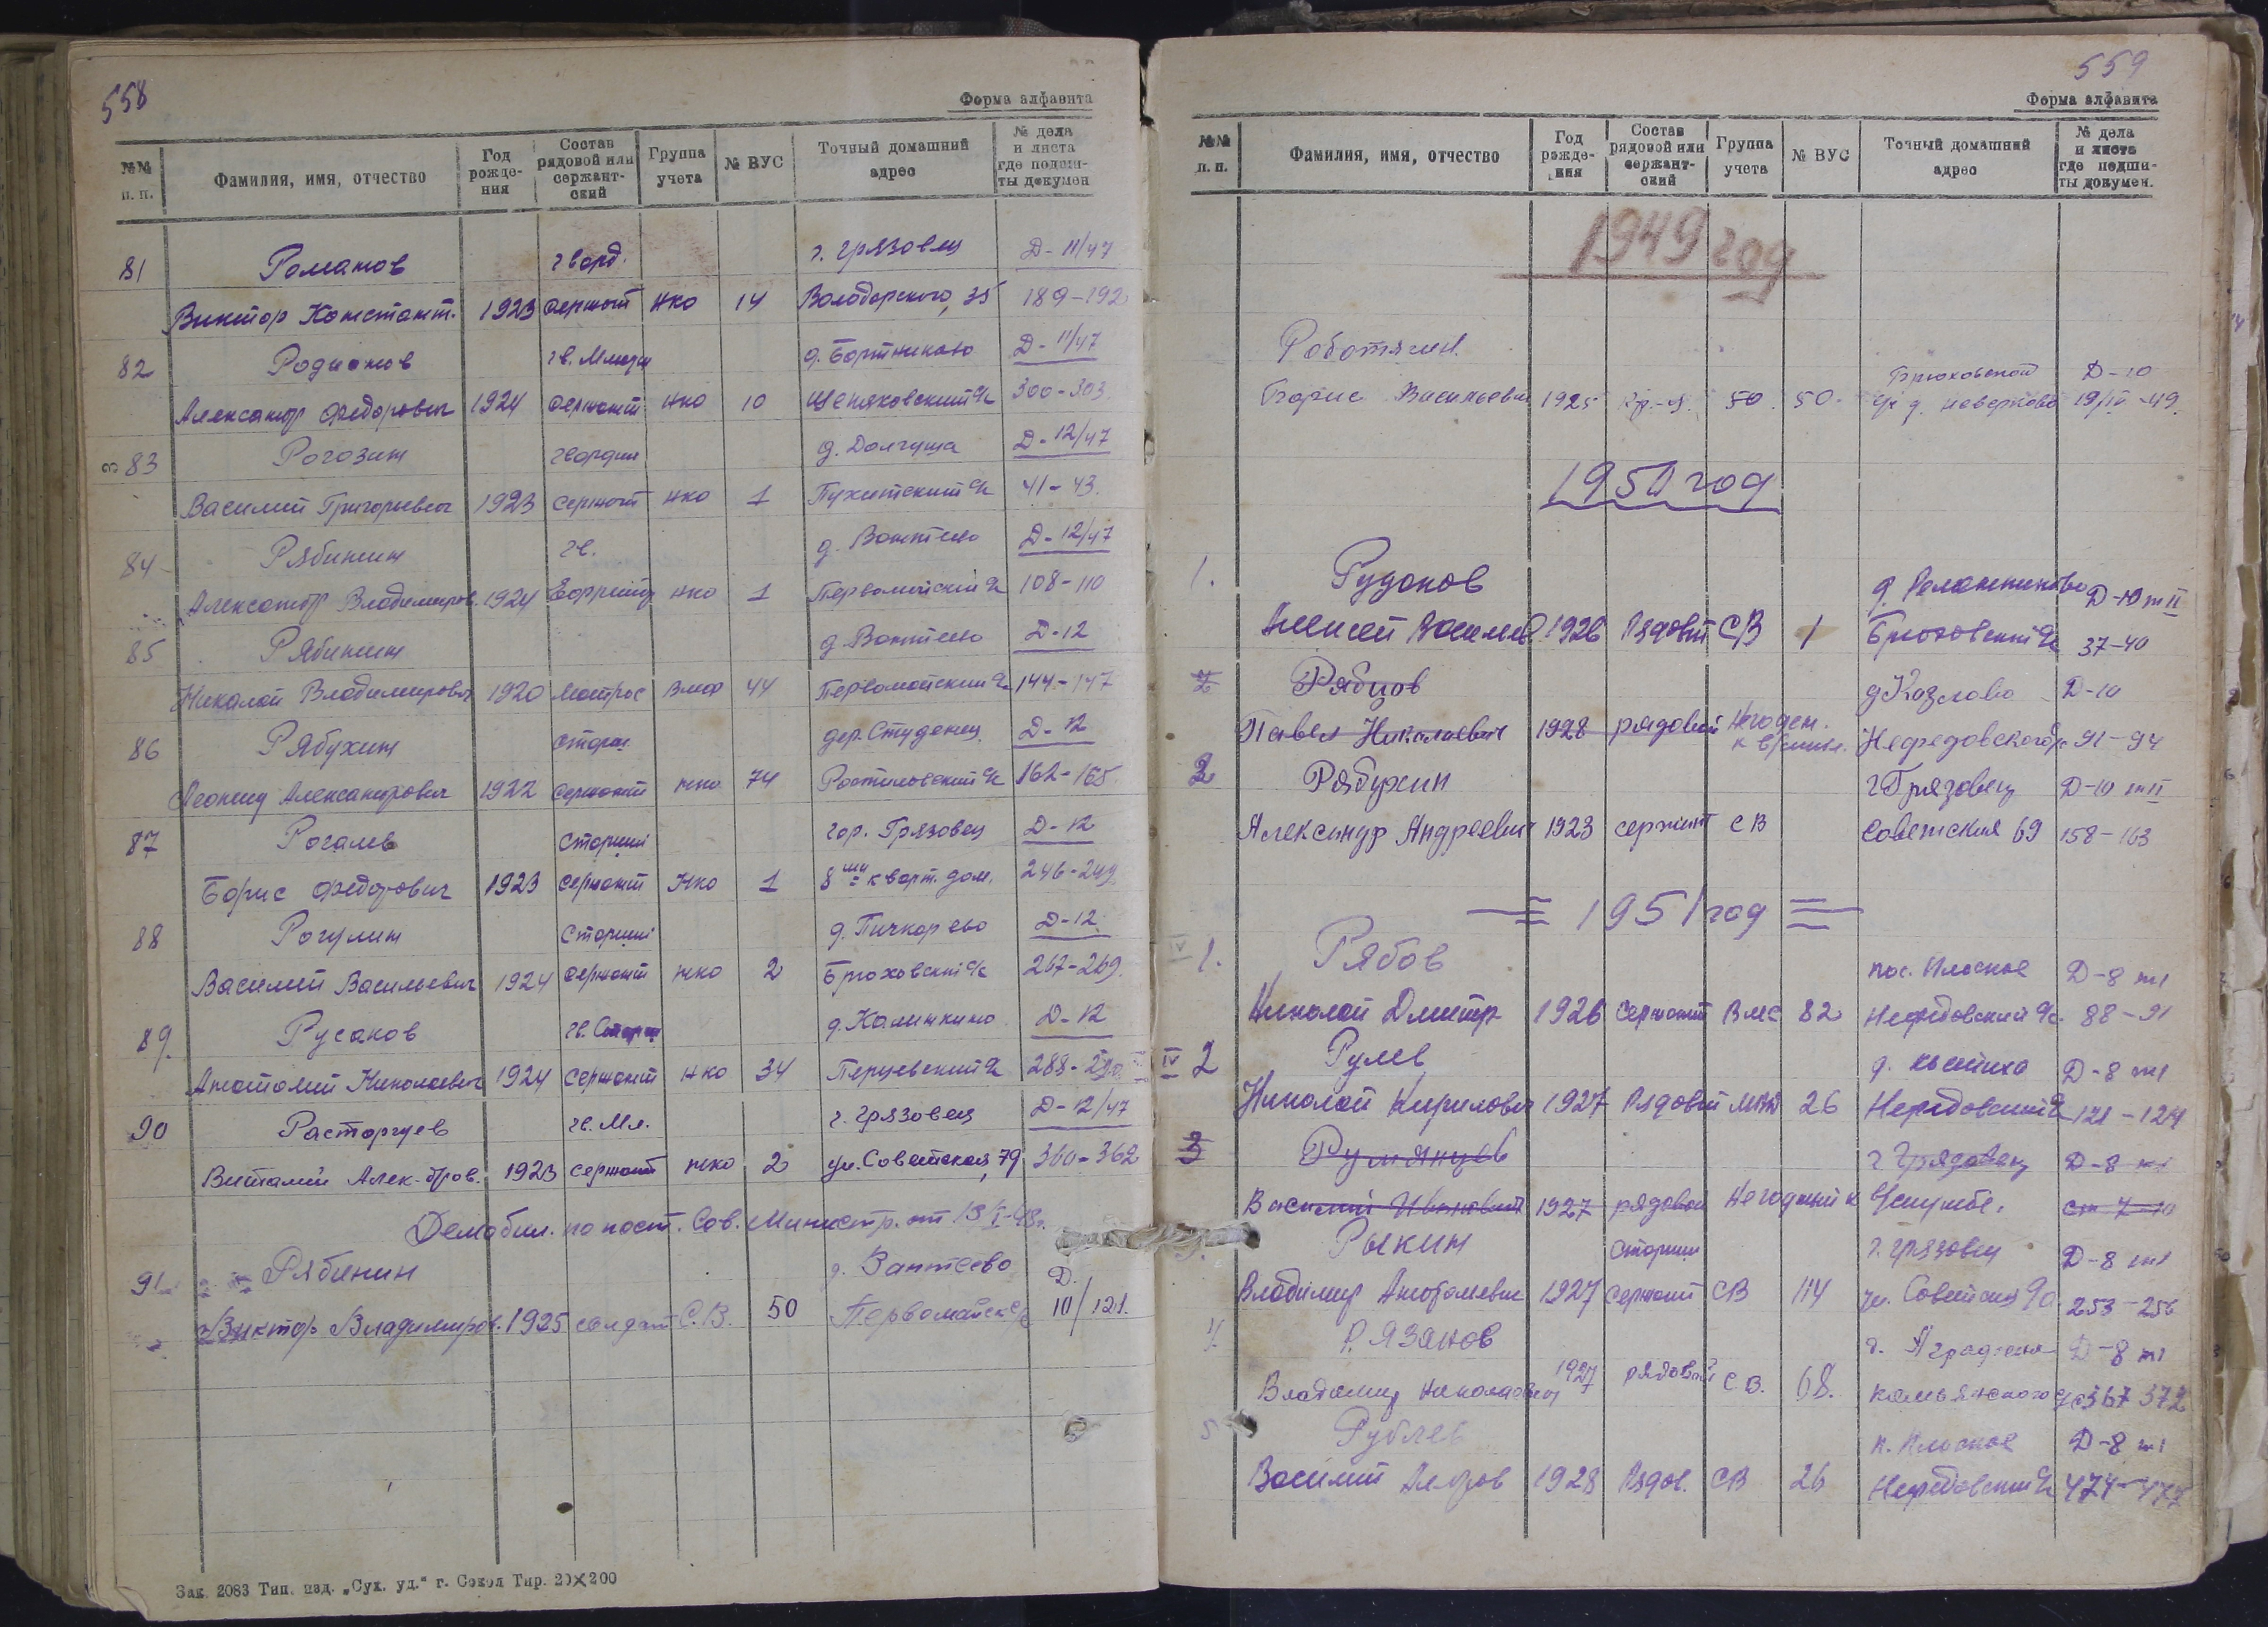 558
Форма алфавита
№№ п. п. Фамилия, имя, отчество Год рожде-ния Состав рядовой или сержант-ский Группа учета № ВУС Точный домашний адрес № дела и листа где подши-ты докумен
81 Романов гвард. г. Грязовец Д-11/47
Виктор Констант. 1923 сержант НКО 14 Володарского, 35 189-192
82 Родионов гв. Мл. д. Бортниково Д-11/47
Александр Федорович 1924 сержант НКО 10 300-303
83 Рогозин гвардии д. Долгуша Д-12/47
Василий Григорьевич 1923 сержант НКО 1 Пухитский с/с 41-43.
84 Рябинин гв. д. Вантеево Д-12/47
Александр Владимиров. 1924 Ефрейтор НКО 1 Первомайский с/с 108-110
85 Рябинин д. Вантеево Д-12
Николай Владимирович 1920 Матрос ВМФ 44 Первомайский с/с 144-147
86 Рябухин старш. дер. Студенец Д-12
Леонид Александрович 1922 сержант НКО 74 Ростиловский с/с 162-165
87 Рогалев Старший гор. Грязовец Д-12
Борис Федорович 1923 сержант НКО 1 8ми кварт. дом. 246-249
88 Рогулин Старший д. Пичкарево Д-12
Василий Васильевич 1924 сержант НКО 2 Брюховский с/с 267-269.
89. Русанов гв. Старш д. Калинкино Д-12
Анатолий Николаевич 1924 сержант НКО 34 Перцевский с/с 288-290
90 Расторгуев гв. Мл. г. Грязовец Д-12/47
Виталий Алек-дров. 1923 сержант НКО 2 ул. Советская, 79 360-362
Демобил. по пост. Сов. Министр. от
91 Рябинин д. Вантеево Д.
Виктор Владимиров. 1925 солдат С.В. 50 Первомайск с/с 10/121.
Зак. 2083 Тип. изд. „Сух. уд." г. Сокол Тир. 20×200
559
Форма алфавита
№№ п. п. Фамилия, имя, отчество Год рожде-ния Состав рядовой или сержант-ский Группа учета № ВУС Точный домашний адрес № дела и листа где подши-ты докумен.
1949 год
Брюховской Д-10
Борис Васильевич 1925 50. 50. с/с д. 19/IV-49.
1950 год
1. Рудаков д. Д-10 т II
Алексей Васильев 1926 Рядовой СВ 1 Брюховский с/с 37-40
2 Рябцов д Козлово Д-10
Павел Николаевич 1928 рядовой Негоден. Нефедовского с/с 91-94
2 Рябухин г Грязовец Д-10 т II
Александр Андреевич 1923 сержант СВ Советская 69 158-163
1951 год
IV 1. Рябов пос. Плоское Д-8 т 1
Николай Дмитр 1926 сержант ВМС 82 Нефедовский с/с. 88-91
IV 2 Рулев д. Д-8 т 1
Николай Кирилович 1927 Рядовой 26 Нефедовский с/с 121-124
3 Румянцев г Грязовец Д-8 т 1
Василий Иванович 1927 рядовой Негодный к в/службе. ст 7-10
Рыкин Старший г. Грязовец Д-8 т 1
Владимир Анатольевич 1927 сержант СВ 114 ул. Советская 90 253-256
4. Рязанов Д-8 т 1
Владимир Николаевич 1927 рядовой С.В. 68. 367 372
5 Рублев п. Плоское Д-8 т 1
Василий 1928 Рядов. СВ 26 Нефедовский с/с 474-477